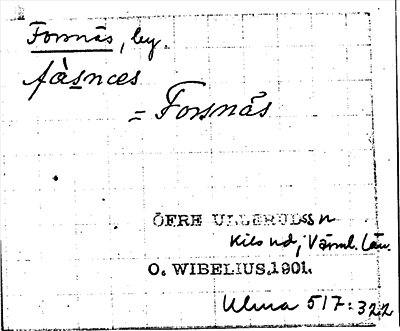 Forsnäs, by.
fàsnæs
= Forsnäs
ÖFRE ULLERUDssn
Kils hd; Värml. län.
O. WIBELIUS.1901.
Ulma 517:322